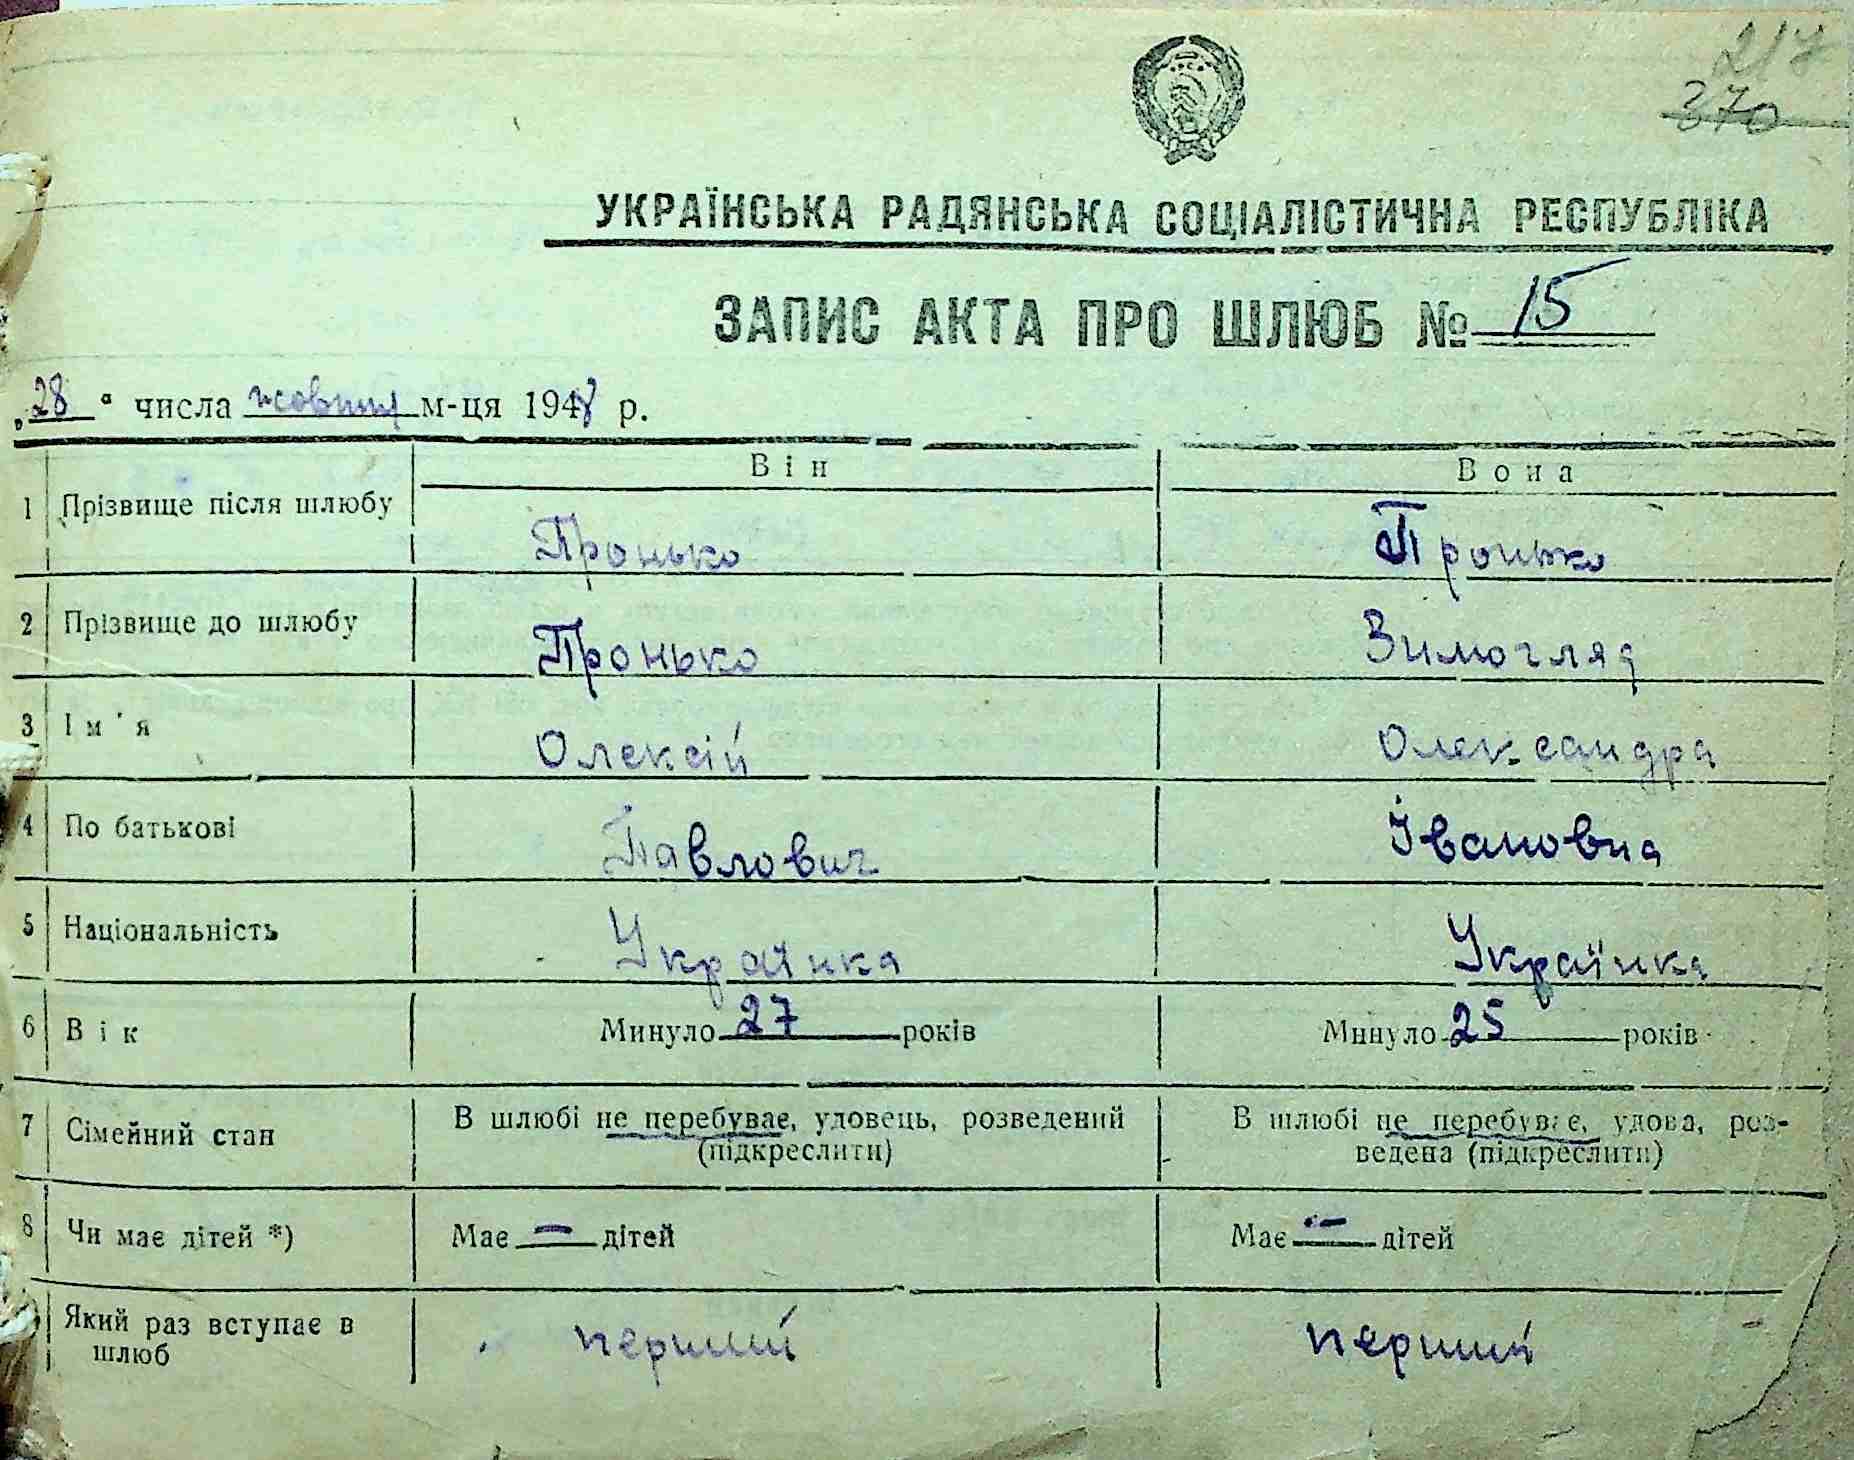 217
370
УКРАЇНСЬКА РАДЯНСЬКА СОЦІАЛІСТИЧНА РЕСПУБЛІКА
ЗАПИС АКТА ПРО ШЛЮБ № 15
„28“ числа жовтня м-ця 1948 р.
Він Вона
1 Прізвище після шлюбу Пронько Пронько
2 Прізвище до шлюбу Пронько Зимогляд
3 Ім'я Олексій Олександра
4 По батькові Павлович Івановна
5 Національність Українка Українка
6 Вік Минуло 27 років Минуло 25 років
7 Сімейний стан В шлюбі не перебуває, удовець, розведений (підкреслити) В шлюбі не перебуває, удова, роз-
ведена (підкреслити)
8 Чи має дітей *) Має — дітей Має — дітей
Який раз вступає в
шлюб перший перший